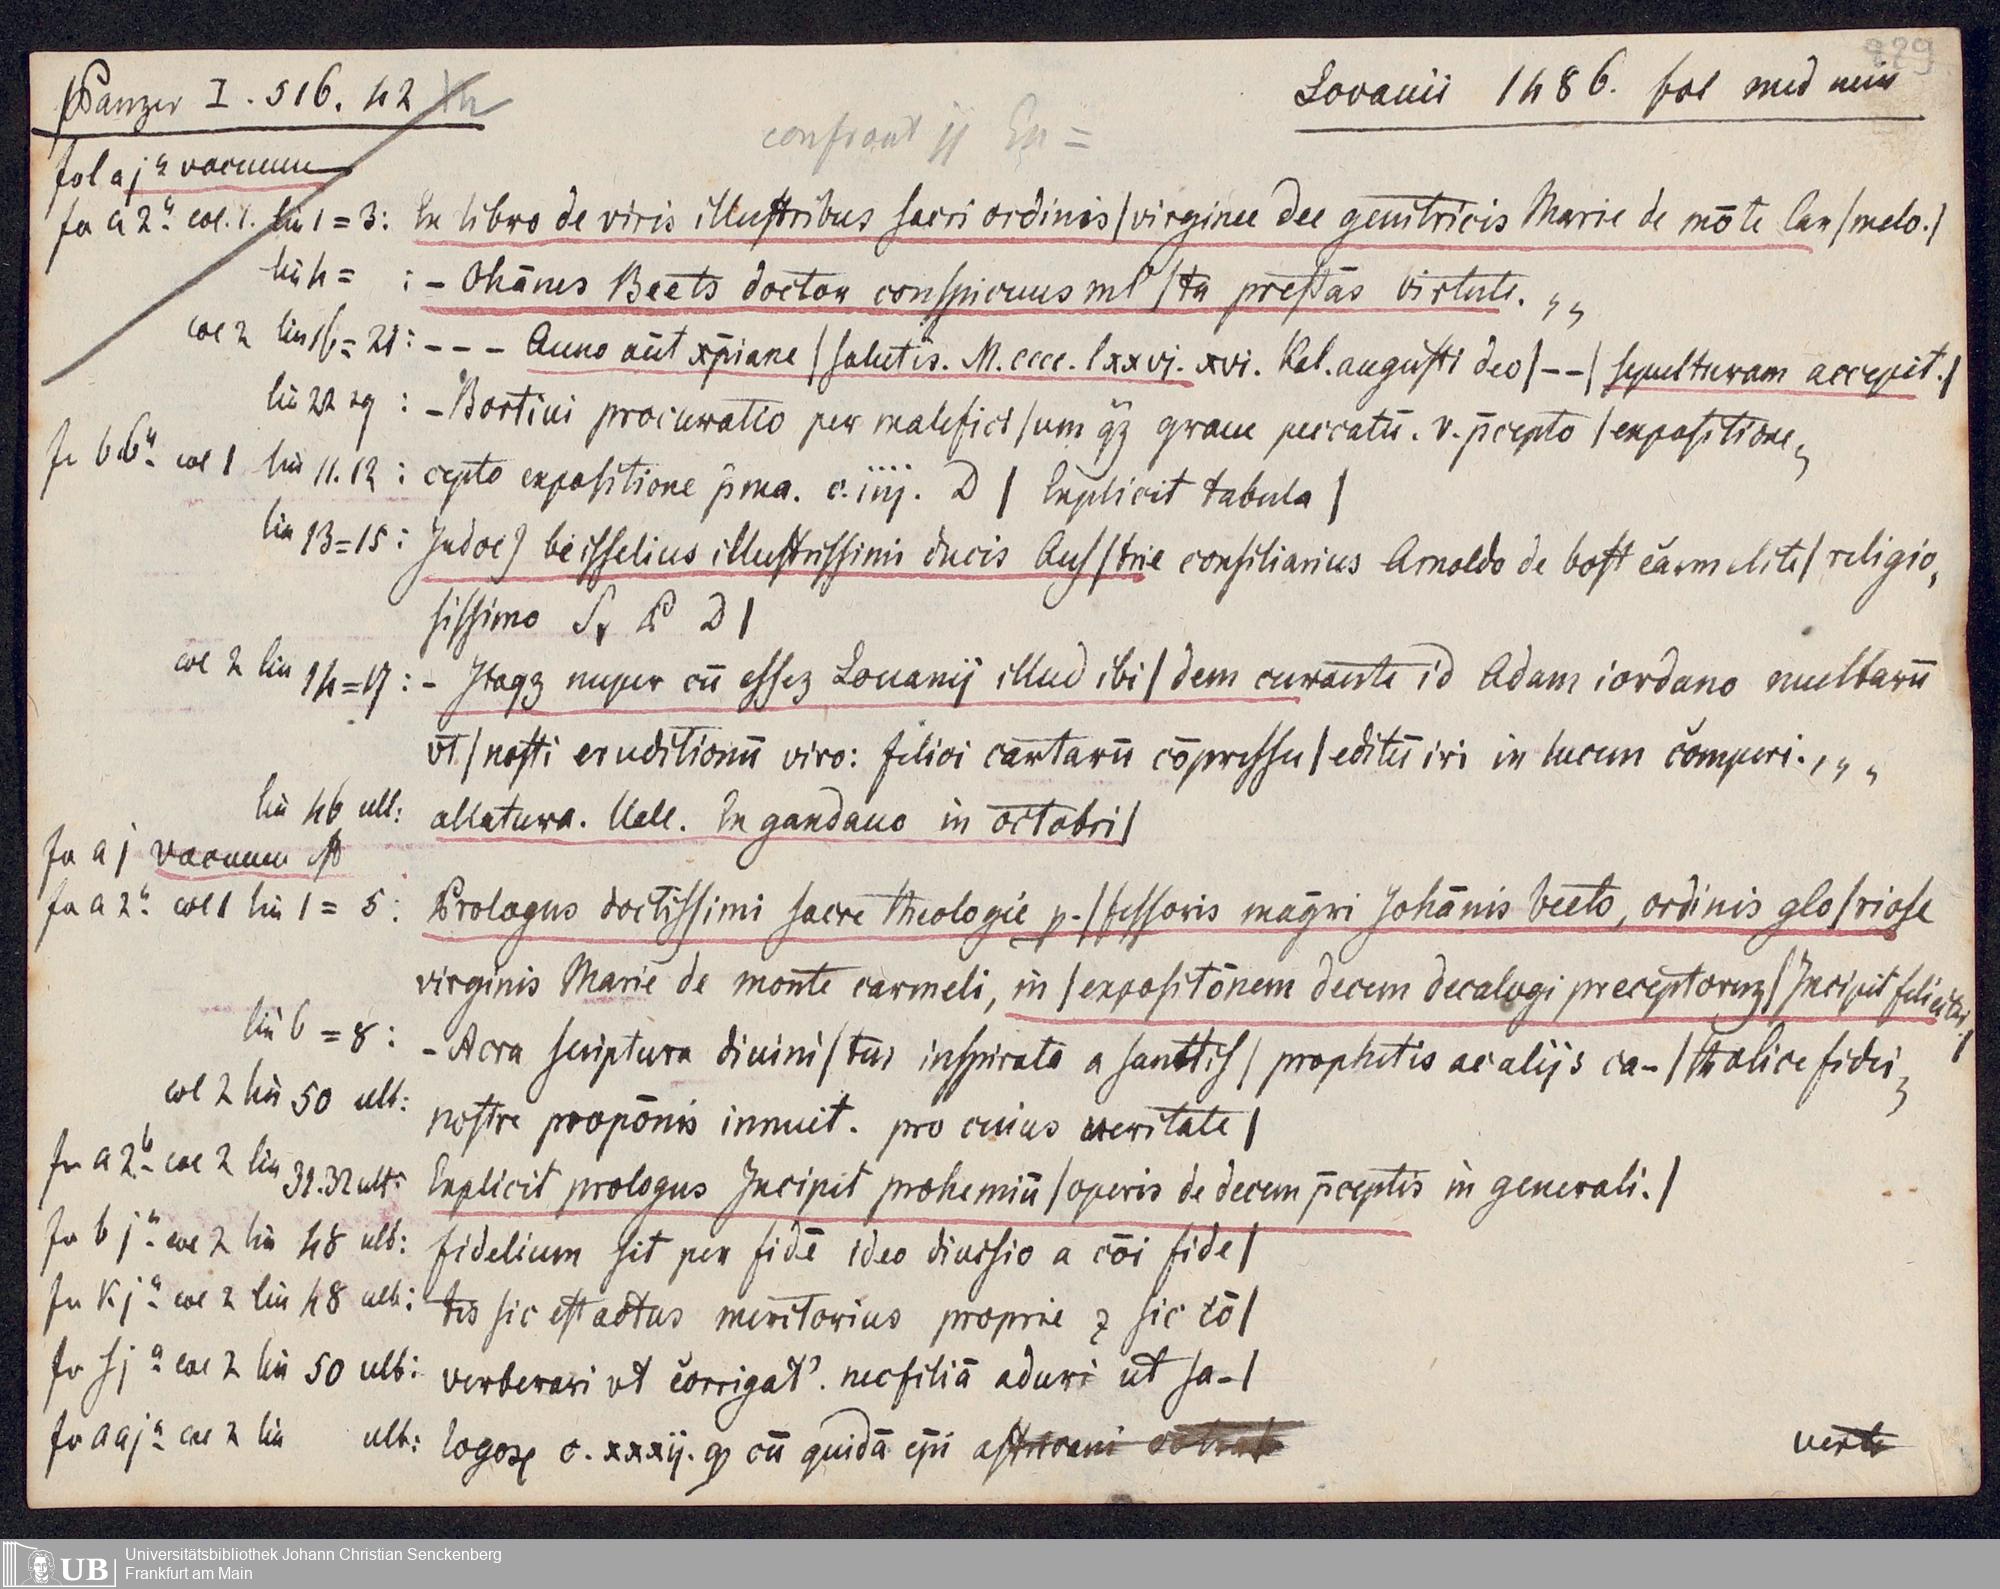 229
Panzer I. 516. 42
Lovanii 1486. fol med min
confront
fol a jᵃ vacuum
fo a 2ᵃ col. 1. lin 1 = 3: In libro de viris illustribus sacri ordinis / virginee dee genitricis Marie de mōte Car / melo. /
lin 4 = : - Ohānes Beets doctor conspicuus ml' / ta prestās virtute. „ „
col 2 lin 16 = 21: - - - Anno aūt xp̄iane / salutis. M. cccc. lxxvj. xvi. Kal. augusti deo / - - / sepulturam accepit. /
lin 22 29 : - Bortini procuratio per malefici / um qʒ graue peccatū. v. p̄cepto / expositione
fo b 6ᵃ col 1 lin 11. 12 : cepto expositione p̄ma. c. iiij. D / Explicit tabula /
lin 13 = 15 : Judoc9 beisselius illustrissimi ducis Aus / trie consiliarius Arnoldo de bost carmelite / religio,
sissimo S, P D /
col 2 lin 14 = 17 : - Itaqʒ nuper cū esseʒ Louanij illud ibi / dem curante id Adam iordano multarū
vt / nosti eruditionū viro: felici cartarū cōpressu / editū iri in lucem comperi. , „ „
lin 46 ult: allatura. Uale. Ex gandauo in octobri /
fo a j vacuum
fo a 2ᵃ col 1 lin 1 = 5 : Prologus doctissimi sacre theologie p- / fessoris magri Johānis beets, ordinis glo / riose
virginis Marie de monte carmeli, in / expositōnem decem decalogi preceptorum / Incipit feliciter. /
lin 6 = 8 : - Acra scriptura diuini / tus inspirata a sanctis / prophetis ac alijs ca- / tholice fidei
col 2 lin 50 ult: nostre propōnis innuit. pro cuius ueritate /
fo a 2ᵇ col 2 lin 31. 32 ult: Explicit prologus Incipit prohemiū / operis de decem p̄ceptis in generali. /
fo b jᵃ col 2 lin 48 ult: fidelium sit per fidē ideo diuisio a cōi fide /
fo K jᵃ col 2 lin 48 ult: tes sic est actus meritorius proprie ⁊ sic cō /
fo s jᵃ col 2 lin 50 ult: verberari vt corrigat'. nec filiā aduri ut sa- /
fo aa jᵃ col 2 lin ult: logoꝝ c. xxxij. ꝙ cū quidā ep̄i
verte
UB
Universitätsbibliothek Johann Christian Senckenberg
Frankfurt am Main